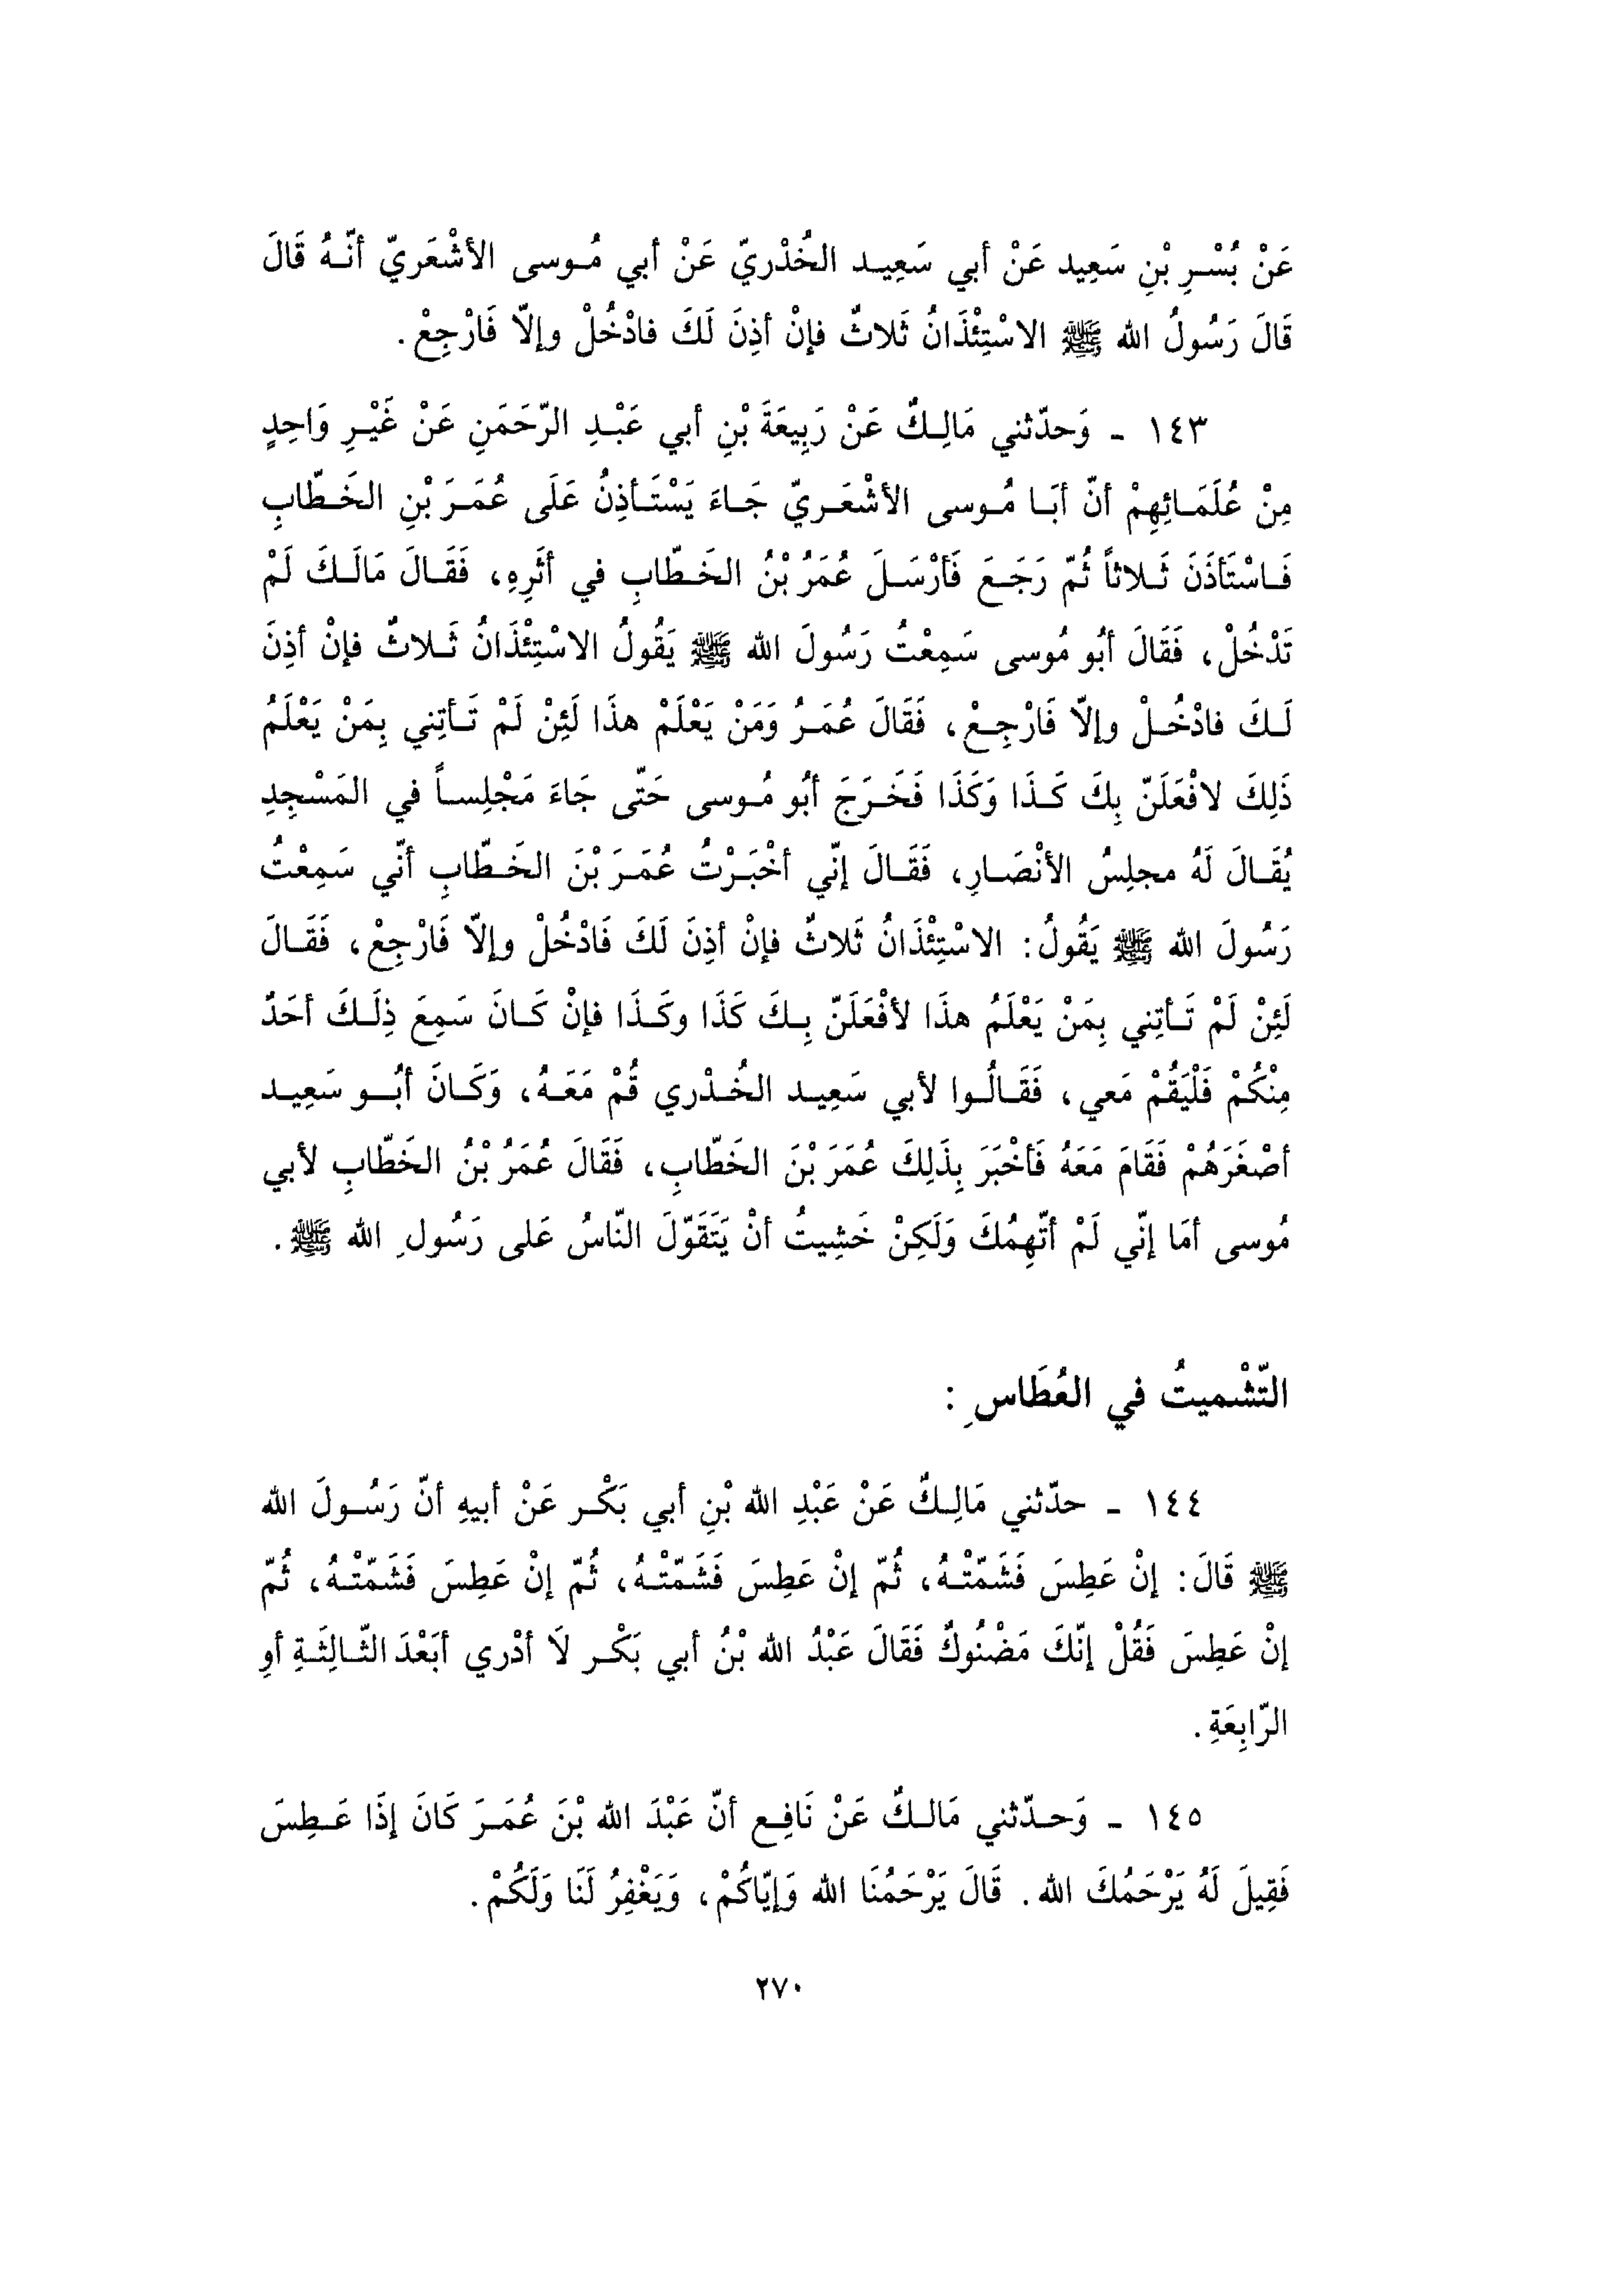 عَنْ بُسْرِ بْنِ سَعِيد عَنْ أبي سَعِيد الخُدْريّ عَنْ أبي مُوسى الأشْعَريّ أنّهُ قَالَ
قَالَ رَسُولُ الله ﷺ الاسْتِئْذَانُ ثَلاثٌ فإنْ أذِنَ لَكَ فادْخُلْ وإلاّ فَارْجِعْ.
١٤٣ ـ وَحدّثني مَالِكٌ عَنْ رَبِيعَةَ بْنِ أبي عَبْدِ الرّحَمَنِ عَنْ غَيْرِ وَاحِدٍ
مِنْ عُلَمَائِهِمْ أنّ أبَا مُوسى الأشْعَريّ جَاءَ يَسْتَأذِنُ عَلَى عُمَرَ بْنِ الخَطّابِ
فَاسْتَأذَنَ ثَلاثاً ثُمّ رَجَعَ فَأرْسَلَ عُمَرُ بْنُ الخَطّابِ في أثَرِهِ، فَقَالَ مَالَكَ لَمْ
تَدْخُلْ، فَقَالَ أبُو مُوسى سَمِعْتُ رَسُولَ الله ﷺ يَقُولُ الاسْتِئْذَانُ ثَلاثٌ فإنْ أذِنَ
لَكَ فادْخُلْ وإلاّ فَارْجِعْ، فَقَالَ عُمَرُ وَمَنْ يَعْلَمْ هذَا لَئِنْ لَمْ تَأتِني بِمَنْ يَعْلَمُ
ذَلِكَ لافْعَلَنّ بِكَ كَذَا وَكَذَا فَخَرَجَ أبُو مُوسى حَتّى جَاءَ مَجْلِساً في المَسْجِدِ
يُقَالَ لَهُ مجلِسُ الأنْصَارِ، فَقَالَ إنّي أخْبَرْتُ عُمَرَ بْنَ الخَطّابِ أنّي سَمِعْتُ
رَسُولَ الله ﷺ يَقُولُ: الاسْتِئْذَانُ ثَلاثٌ فإنْ أذِنَ لَكَ فَادْخُلْ وإلاّ فَارْجِعْ، فَقَالَ
لَئِنْ لَمْ تَأتِني بِمَنْ يَعْلَمُ هذَا لأفْعَلَنّ بِكَ كَذَا وكَذَا فإنْ كَانَ سَمِعَ ذِلَكَ أحَدٌ
مِنْكُمْ فَلْيَقُمْ مَعي، فَقَالُوا لأبي سَعِيد الخُدْري قُمْ مَعَهُ، وَكَانَ أبُو سَعِيد
أصْغَرَهُمْ فَقَامَ مَعَهُ فَأخْبَرَ بِذَلِكَ عُمَرَ بْنَ الخَطّابِ، فَقَالَ عُمَرُ بْنُ الخَطّابِ لأبي
مُوسى أمَا إنّي لَمْ أتّهِمُكَ وَلَكِنْ خَشِيتُ أنْ يَتَقَوّلَ النّاسُ عَلى رَسُولِ الله ﷺ.
التّشْميتُ في العُطَاسِ:
١٤٤ ـ حدّثني مَالِكٌ عَنْ عَبْدِ الله بْنِ أبي بَكْر عَنْ أبيهِ أنّ رَسُولَ الله
ﷺ قَالَ: إنْ عَطِسَ فَشَمّتْهُ، ثُمّ إنْ عَطِسَ فَشَمّتْهُ، ثُمّ إنْ عَطِسَ فَشَمّتْهُ، ثُمّ
إنْ عَطِسَ فَقُلْ إنّكَ مَضْنُوكٌ فَقَالَ عَبْدُ الله بْنُ أبي بَكْر لَا أدْري أبَعْدَ الثّالِثَةِ أوِ
الرّابِعَةِ.
١٤٥ ـ وَحدّثني مَالكٌ عَنْ نَافِع أنّ عَبْدَ الله بْنَ عُمَرَ كَانَ إذَا عَطِسَ
فَقِيلَ لَهُ يَرْحَمُكَ الله. قَالَ يَرْحَمُنَا الله وَإيّاكُمْ، وَيَغْفِرُ لَنَا وَلَكُمْ.
٢٧٠